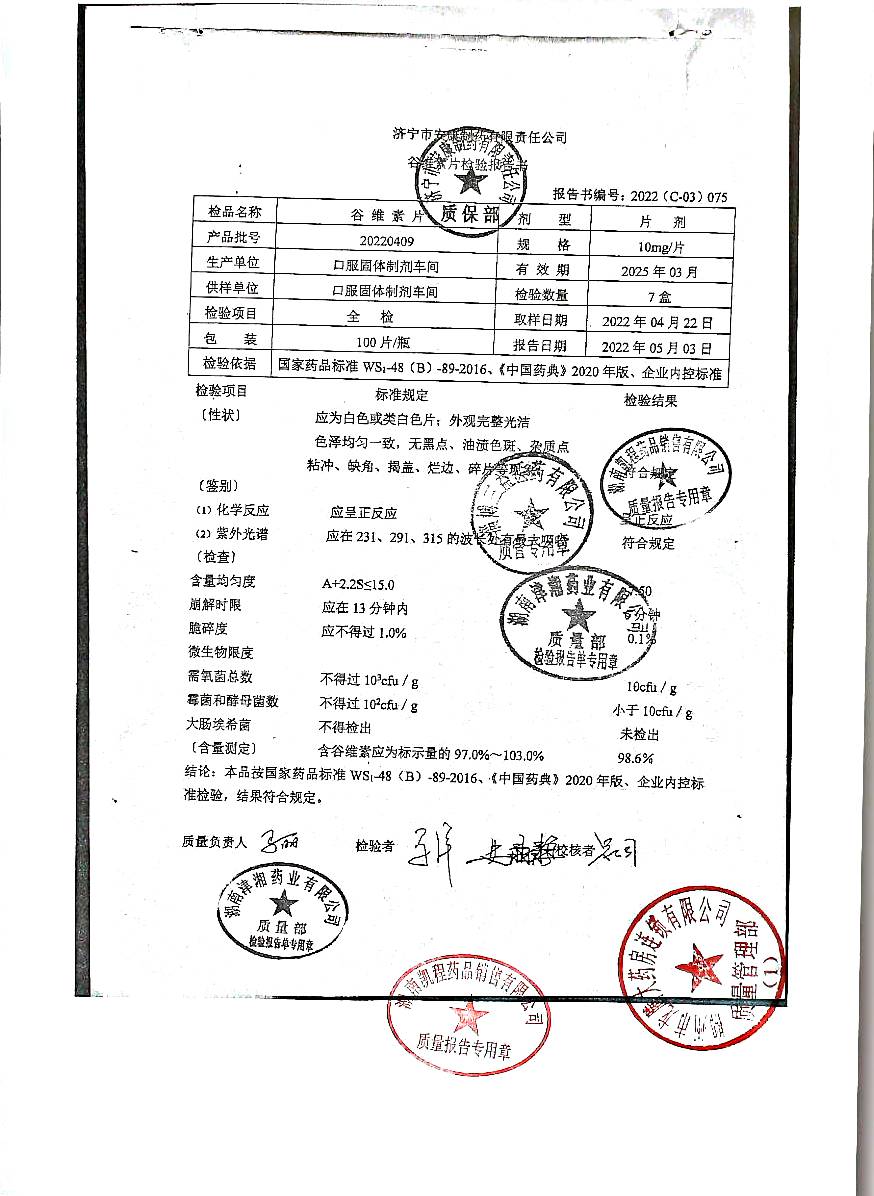 济宁市安康制药有限责任公司
谷维素片检验报告书
报告书编号：2022（C-03）075
检品名称 谷维素片 剂型 片剂
产品批号 20220409 规格 10mg/片
生产单位 口服固体制剂车间 有效期 2025年03月
供样单位 口服固体制剂车间 检验数量 7盒
检验项目 全检 取样日期 2022年04月22日
包装 100片/瓶 报告日期 2022年05月03日
检验依据 国家药品标准WS₁-48（B）-89-2016、《中国药典》2020年版、企业内控标准
检验项目 标准规定 检验结果
〔性状〕 应为白色或类白色片；外观完整光洁
色泽均匀一致，无黑点、油渍色斑、杂质点
粘冲、缺角、揭盖、烂边、碎片等现象 符合规定
〔鉴别〕
（1）化学反应 应呈正反应 呈正反应
（2）紫外光谱 应在231、291、315的波长处有最大吸收 符合规定
〔检查〕
含量均匀度 A+2.2S≤15.0 .50
崩解时限 应在13分钟内 分钟
脆碎度 应不得过1.0% 0.1%
微生物限度
需氧菌总数 不得过10³cfu/g 10cfu/g
霉菌和酵母菌数 不得过10²cfu/g 小于10cfu/g
大肠埃希菌 不得检出 未检出
〔含量测定〕 含谷维素应为标示量的97.0%～103.0% 98.6%
结论：本品按国家药品标准WS₁-48（B）-89-2016、《中国药典》2020年版、企业内控标
准检验，结果符合规定。
质量负责人 检验者 校核者
济宁市安康制药有限责任公司
质保部
湖南凯程药品销售有限公司
质量报告专用章
三益医药有限公司
质管专用章
湖南津湘药业有限公司
质量部
检验报告单专用章
湖南津湘药业有限公司
质量部
检验报告单专用章
湖南凯程药品销售有限公司
质量报告专用章
大药房连锁有限公司
质量管理部
（1）